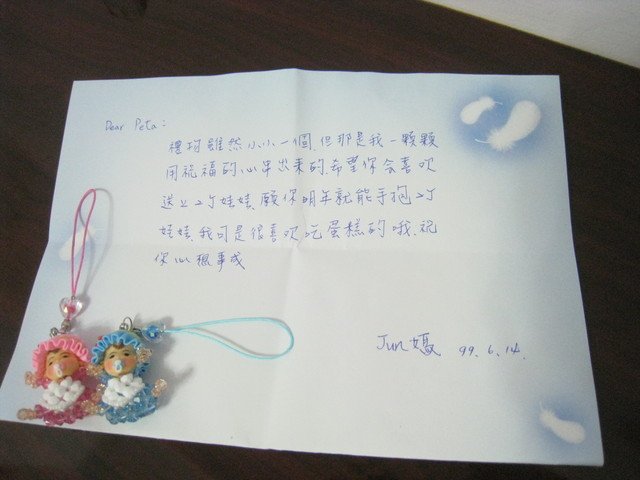 Dear Peta:
禮物雖然小小一個,但那是我一顆顆
用祝福的心串出來的,希望你會喜欢
送上2个娃娃,願你明年就能手抱2个
娃娃,我可是很喜欢吃蛋糕的哦,祝
你心想事成
Jun媽 99.6.14.